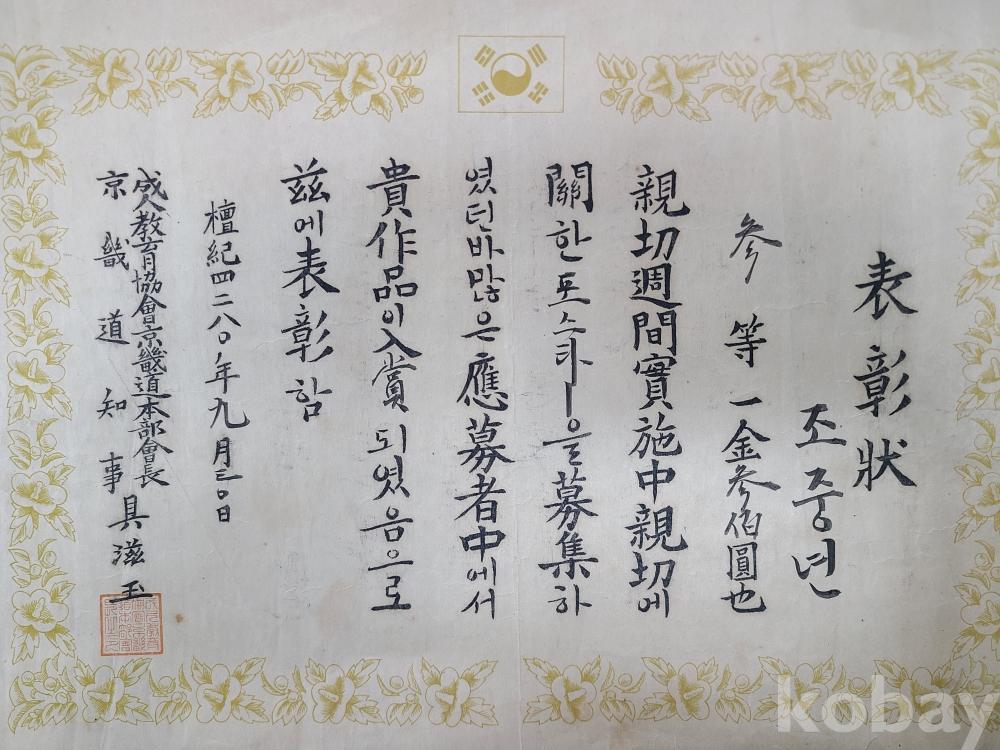 表彰狀
조중년
参等 一金参伯圓也
親切週間實施中親切에
關한포스타ー을募集하
였던바많은應募者中에서
貴作品이入賞되였음으로
玆에表彰함
檀紀四二八〇年九月三〇日
成人教育協會京畿道本部會長
京畿道知事具滋玉
kobay